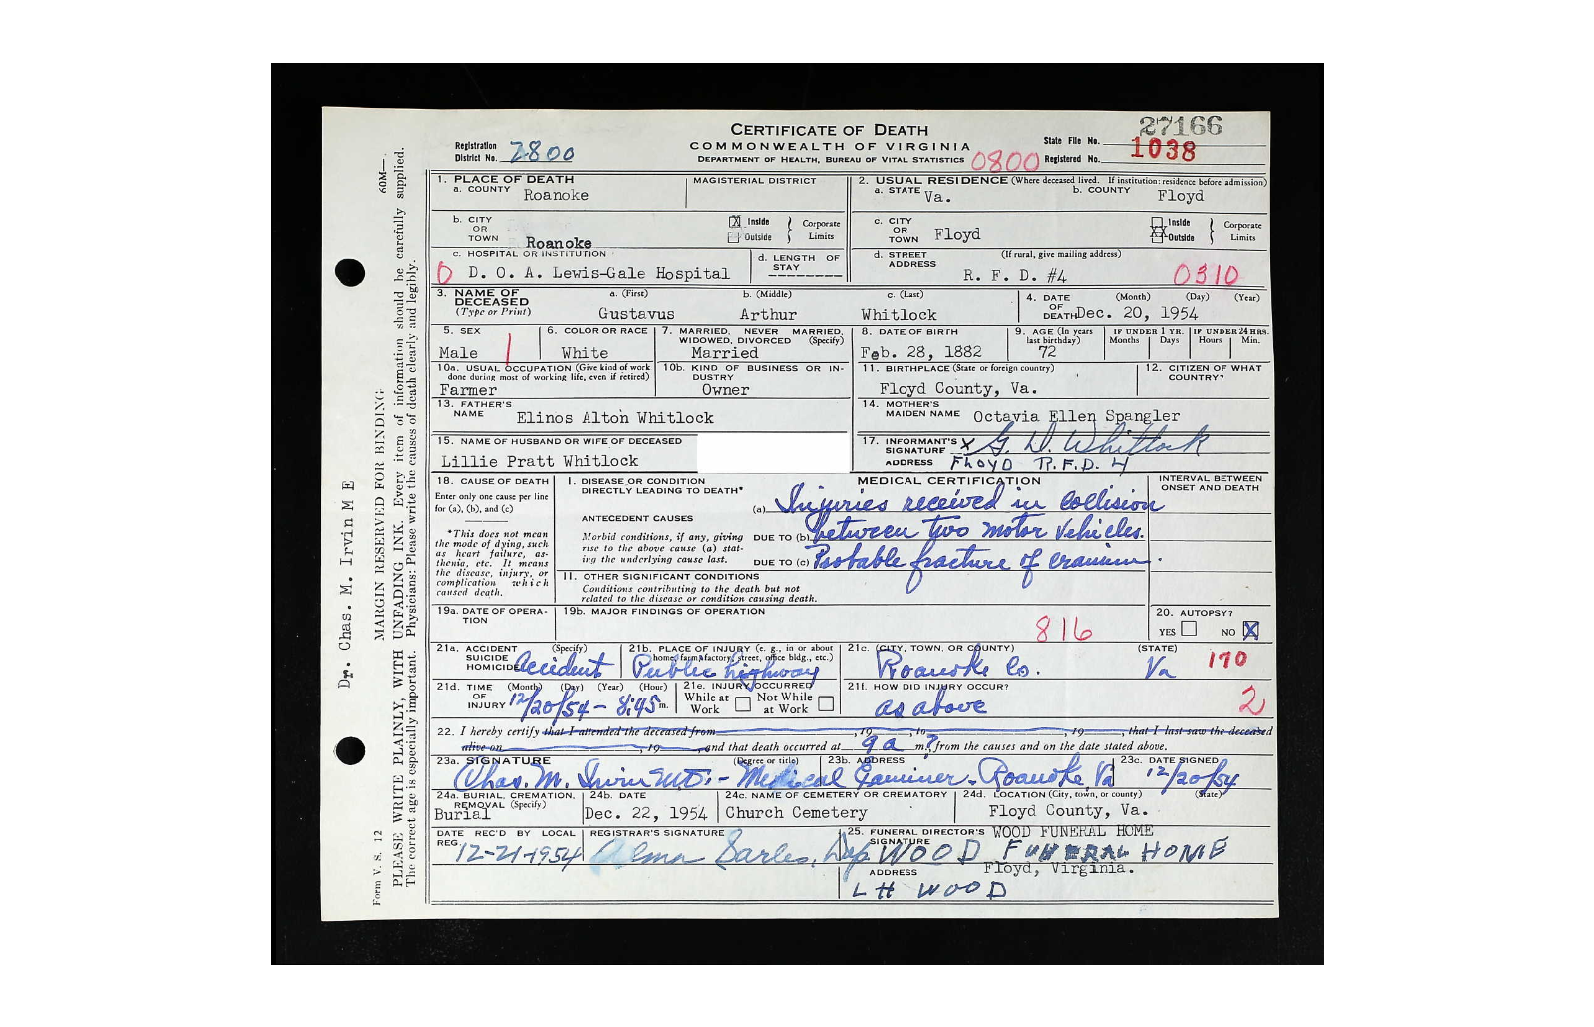 27166
CERTIFICATE OF DEATH
COMMONWEALTH OF VIRGINIA
DEPARTMENT OF HEALTH, BUREAU OF VITAL STATISTICS 0800
Registration District No. 2800
State File No.
Registered No. 1038
1. PLACE OF DEATH
a. COUNTY Roanoke
MAGISTERIAL DISTRICT
2. USUAL RESIDENCE (Where deceased lived. If institution: residence before admission)
a. STATE Va. b. COUNTY Floyd
b. CITY OR TOWN Roanoke
X Inside Outside } Corporate Limits
c. CITY OR TOWN Floyd
Inside Outside } Corporate Limits
c. HOSPITAL OR INSTITUTION
0 D. O. A. Lewis-Gale Hospital
d. LENGTH OF STAY --------
d. STREET ADDRESS (If rural, give mailing address)
R. F. D. #4 0310
3. NAME OF DECEASED (Type or Print)
a. (First) b. (Middle) c. (Last)
Gustavus Arthur Whitlock
4. DATE OF DEATH (Month) (Day) (Year)
Dec. 20, 1954
5. SEX
Male 1
6. COLOR OR RACE
White
7. MARRIED, NEVER MARRIED, WIDOWED, DIVORCED (Specify)
Married
8. DATE OF BIRTH
Feb. 28, 1882
9. AGE (In years last birthday)
72
IF UNDER 1 YR. Months Days
IF UNDER 24 HRS. Hours Min.
10a. USUAL OCCUPATION (Give kind of work done during most of working life, even if retired)
Farmer
10b. KIND OF BUSINESS OR INDUSTRY
Owner
11. BIRTHPLACE (State or foreign country)
Floyd County, Va.
12. CITIZEN OF WHAT COUNTRY?
13. FATHER'S NAME Elinos Alton Whitlock
14. MOTHER'S MAIDEN NAME Octavia Ellen Spangler
15. NAME OF HUSBAND OR WIFE OF DECEASED
Lillie Pratt Whitlock
17. INFORMANT'S SIGNATURE X G. D. Whitlock
ADDRESS FLOYD R.F.D. 4
18. CAUSE OF DEATH
Enter only one cause per line for (a), (b), and (c)
*This does not mean the mode of dying, such as heart failure, asthenia, etc. It means the disease, injury, or complication which caused death.
MEDICAL CERTIFICATION
INTERVAL BETWEEN ONSET AND DEATH
I. DISEASE OR CONDITION DIRECTLY LEADING TO DEATH*
(a) Injuries received in collision
ANTECEDENT CAUSES
Morbid conditions, if any, giving rise to the above cause (a) stating the underlying cause last.
DUE TO (b) between two motor vehicles.
DUE TO (c) Probable fracture of cranium.
II. OTHER SIGNIFICANT CONDITIONS
Conditions contributing to the death but not related to the disease or condition causing death.
19a. DATE OF OPERATION
19b. MAJOR FINDINGS OF OPERATION
816
20. AUTOPSY?
YES NO X
21a. ACCIDENT SUICIDE HOMICIDE (Specify)
Accident
21b. PLACE OF INJURY (e. g., in or about home, farm, factory, street, office bldg., etc.)
Public highway
21c. (CITY, TOWN, OR COUNTY) (STATE)
Roanoke Co. Va 170
21d. TIME OF INJURY (Month) (Day) (Year) (Hour)
12/20/54 - 8:45 m.
21e. INJURY OCCURRED
While at Work Not While at Work
21f. HOW DID INJURY OCCUR?
as above 2
22. I hereby certify that I attended the deceased from , 19 , to , 19 , that I last saw the deceased
alive on , 19 , and that death occurred at 9 a m?, from the causes and on the date stated above.
23a. SIGNATURE (Degree or title) 23b. ADDRESS 23c. DATE SIGNED
Chas. M. Irvin M.D. - Medical Examiner - Roanoke, Va 12/20/54
24a. BURIAL, CREMATION, REMOVAL (Specify)
Burial
24b. DATE
Dec. 22, 1954
24c. NAME OF CEMETERY OR CREMATORY
Church Cemetery
24d. LOCATION (City, town, or county) (State)
Floyd County, Va.
DATE REC'D BY LOCAL REG.
12-21-1954
REGISTRAR'S SIGNATURE
Alma Sarles, Dep
25. FUNERAL DIRECTOR'S SIGNATURE WOOD FUNERAL HOME
WOOD FUNERAL HOME
ADDRESS Floyd, Virginia.
L H WOOD
Dr. Chas. M. Irvin M E
Form V. S. 12
60M—
MARGIN RESERVED FOR BINDING
PLEASE WRITE PLAINLY, WITH UNFADING INK. Every item of information should be carefully supplied.
The correct age is especially important. Physicians: Please write the causes of death clearly and legibly.